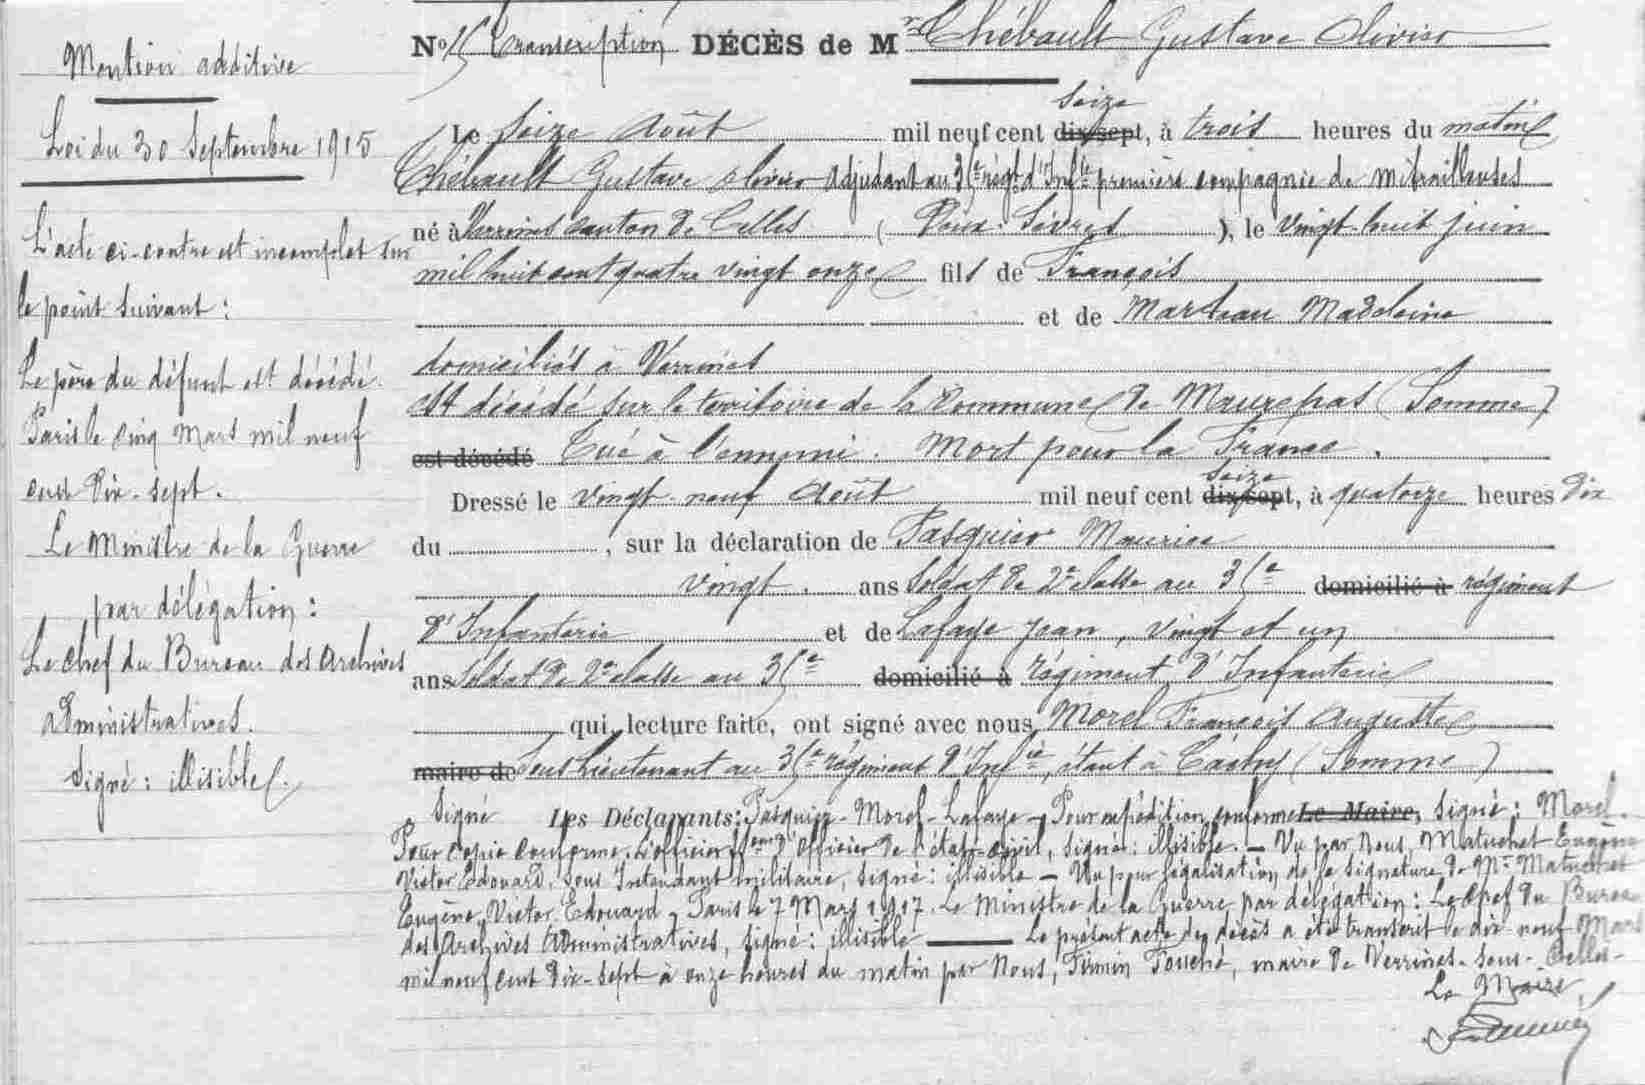 Mention additive
Loi du 30 Septembre 1915
L'acte ci-contre est incomplet sur
le point suivant :
Le père du défunt est décédé.
Paris le cinq Mars mil neuf
cent dix-sept.
Le Ministre de la Guerre
par délégation :
Le Chef du Bureau des Archives
administratives.
Signé : illisible.
No 5 Transcription DÉCÈS de Mr Thébault Gustave Olivier
Le seize Août mil neuf cent dix-sept seize, à trois heures du matin
Thébault Gustave Olivier adjudant au 35e régt d'Infie première compagnie de mitrailleuses
né à Verrines canton de Celles (Deux-Sèvres), le vingt-huit juin
mil huit cent quatre vingt onze fils de François
et de Marteau Madeleine
domiciliés à Verrines
est décédé sur le territoire de la commune de Maurepas (Somme)
est décédé Tué à l'ennemi. Mort pour la France.
Dressé le vingt-neuf Août mil neuf cent dix-sept seize, à quatorze heures dix
du , sur la déclaration de Pasquier Maurice
vingt. ans soldat de 2e classe au 35e domicilié à régiment
d'Infanterie et de Lafaye Jean, vingt et un
ans soldat de 2e classe au 35e domicilié à régiment d'Infanterie
qui, lecture faite, ont signé avec nous, Morel François Auguste
maire de Sous Lieutenant au 35e régiment d'Infie, étant à (Somme)
Signé Les Déclarants : Pasquier - Morel - Lafaye - Pour expédition conforme Le Maire, signé : Morel.
Pour copie conforme. L'officier d'officier de l'état-civil, signé : illisible. - Vu par Nous, Matuchet Eugène
Victor Edouard, Sous Intendant militaire, signé : illisible - Vu pour légalisation de la signature de Mr Matuchet
Eugène, Victor, Edouard, Paris le 7 Mars 1917. Le Ministre de la Guerre par délégation : Le Chef du Bureau
des Archives Administratives, signé : illisible — Le présent acte de décès a été transcrit le dix-neuf Mars
mil neuf cent dix-sept à onze heures du matin par Nous, Firmin Fouché, maire de Verrines-sous-Celles-
Le Maire,